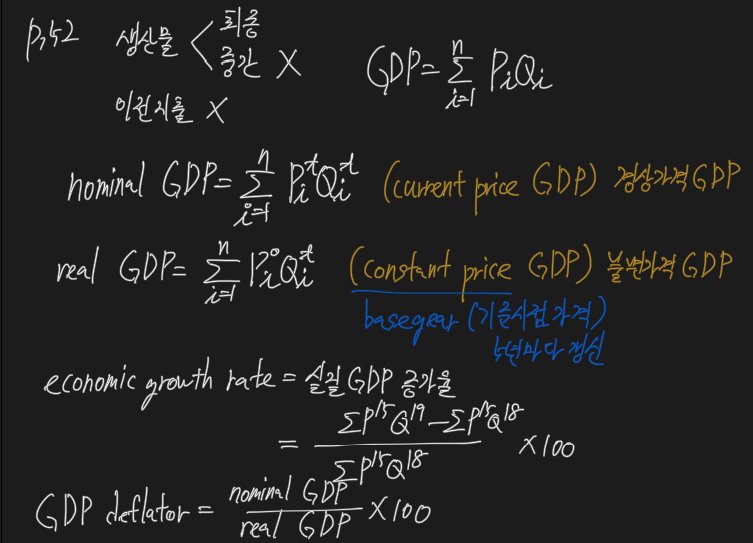 p.52 생산물 < 최종
중간 X
이전지출 X
GDP = \sum_{i=1}^{n} P_i Q_i
nominal GDP = \sum_{i=1}^{n} P_i^t Q_i^t (current price GDP) 경상가격 GDP
real GDP = \sum_{i=1}^{n} P_i^0 Q_i^t (constant price GDP) 불변가격 GDP
base year (기준시점 가격)
5년마다 갱신
economic growth rate = 실질 GDP 증가율
= \frac{\sum P^{15}Q^{19} - \sum P^{15}Q^{18}}{\sum P^{15}Q^{18}} × 100
GDP deflator = \frac{nominal GDP}{real GDP} × 100